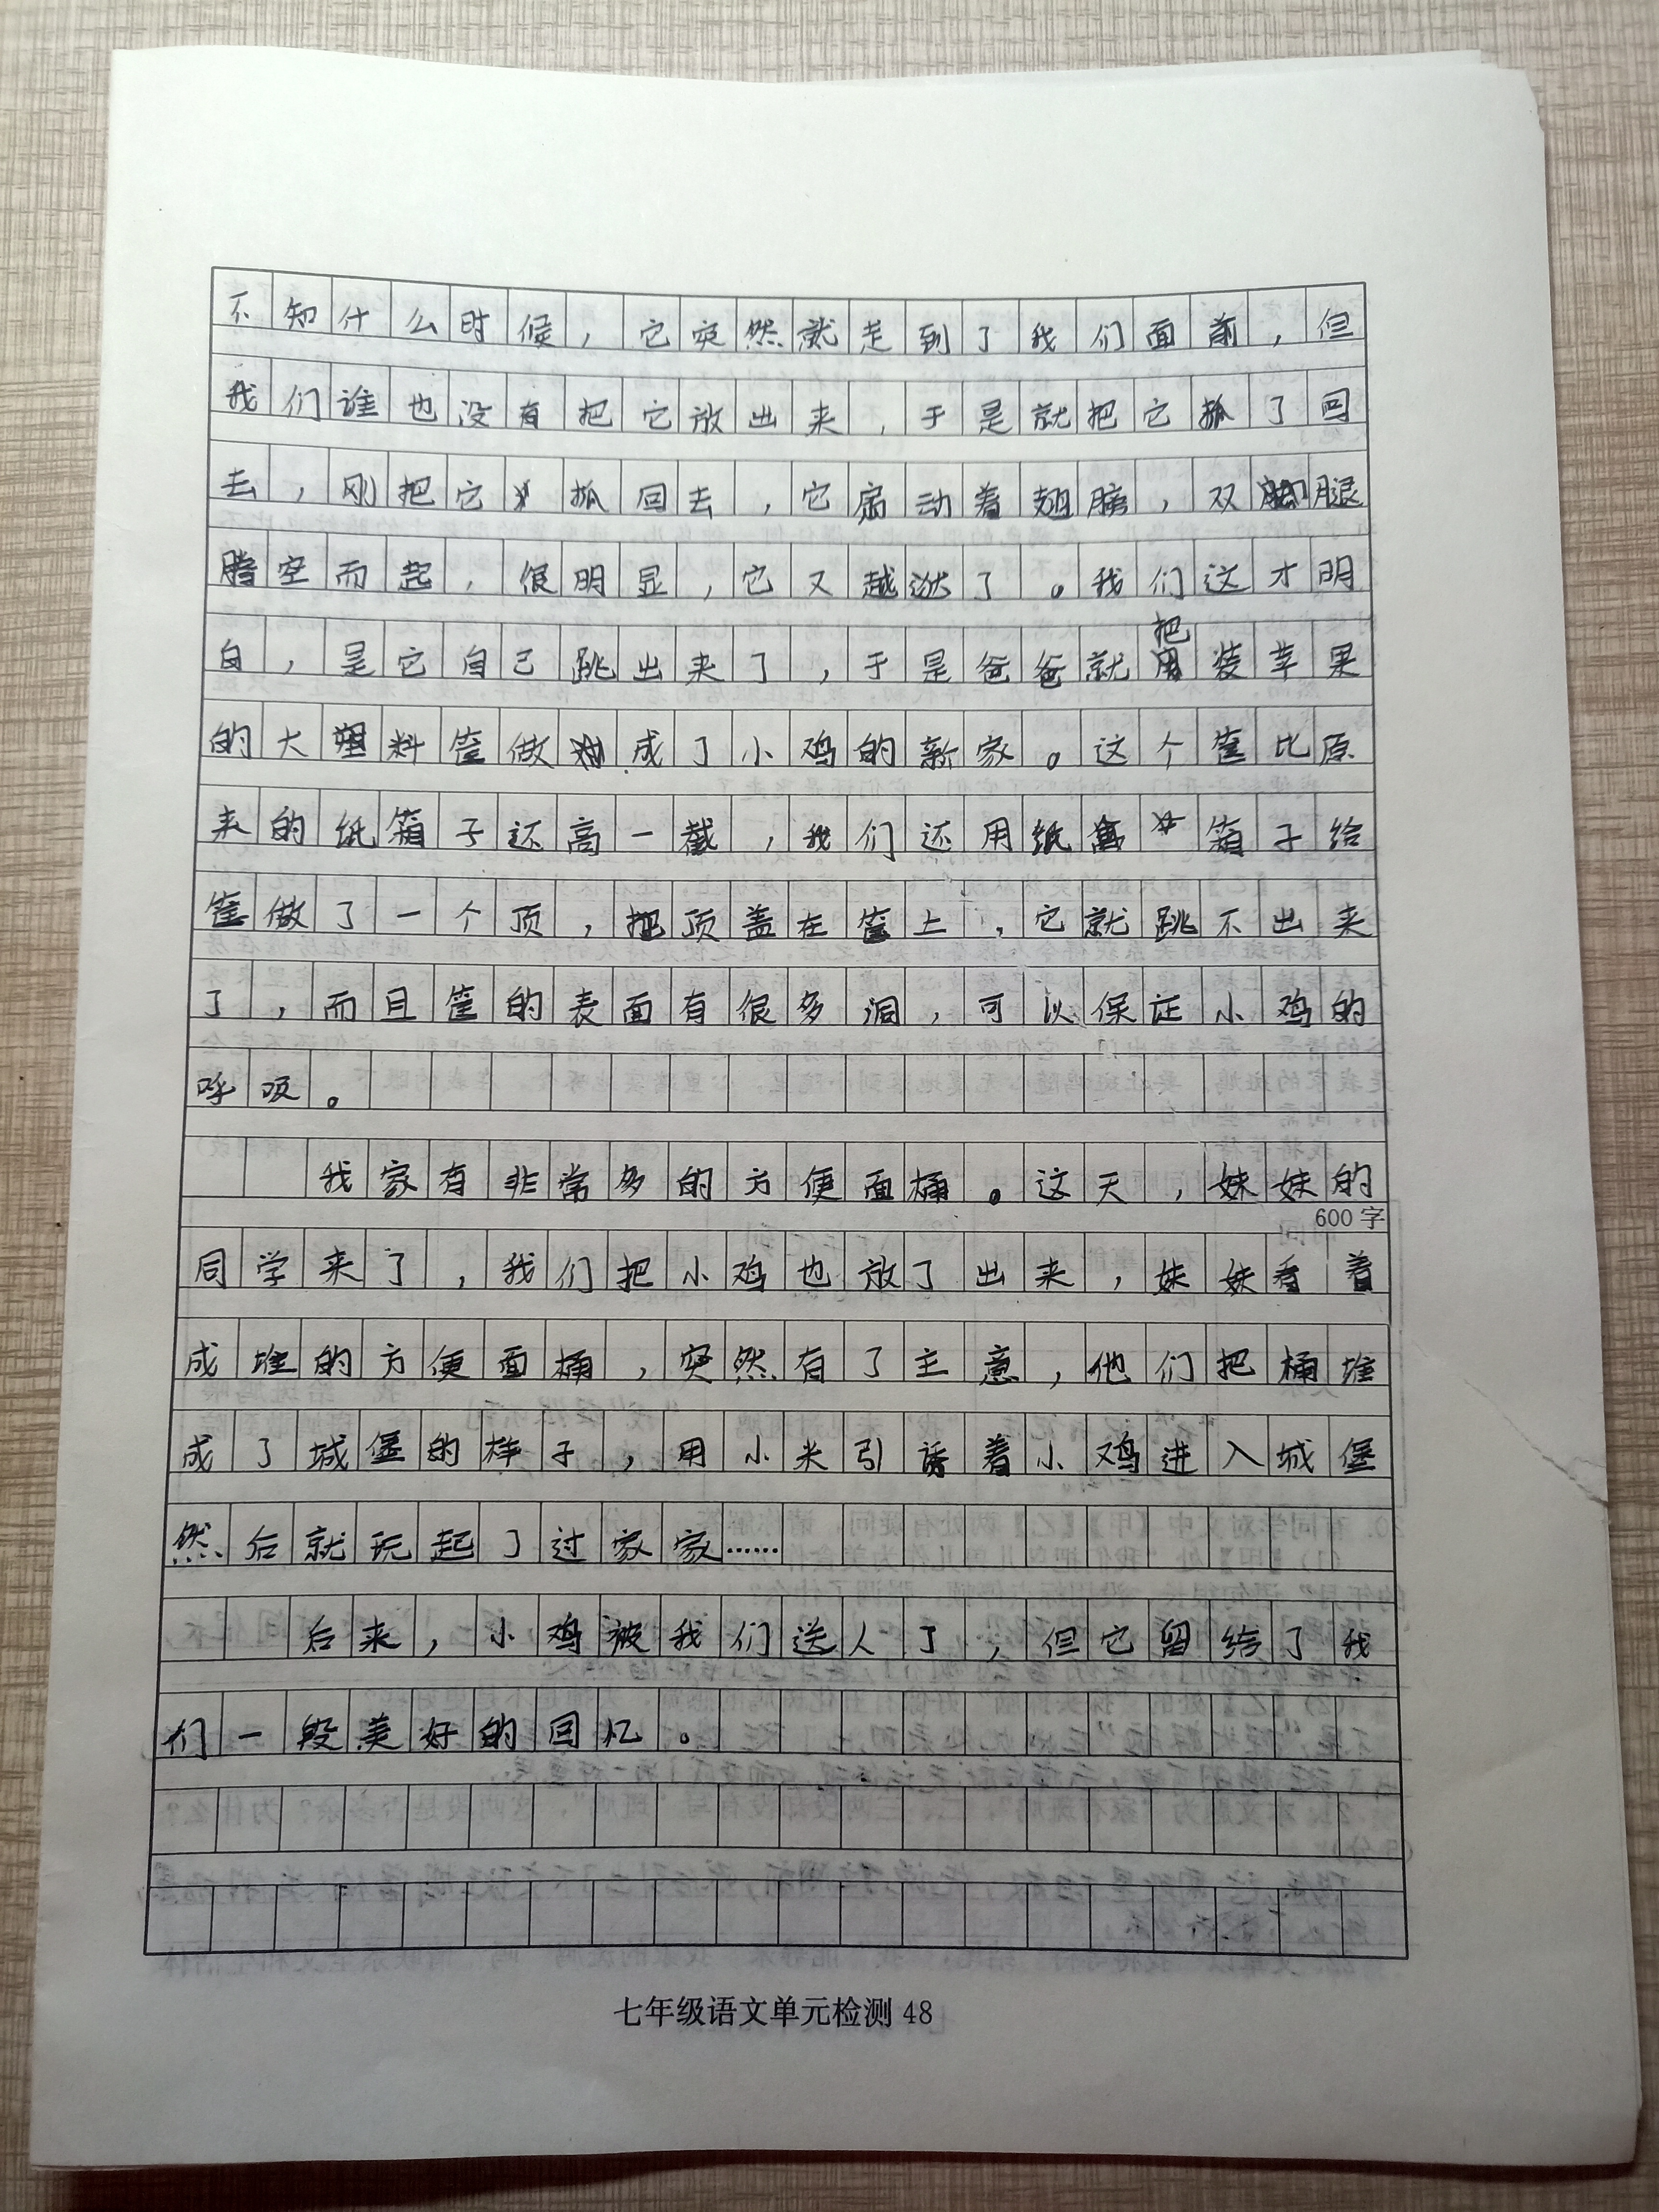 不知什么时候，它突然就走到了我们面前，但
我们谁也没有把它放出来，于是就把它抓了回
去，刚把它抓回去，它扇动着翅膀，双腿
腾空而起，很明显，它又越狱了。我们这才明
白，是它自己跳出来了，于是爸爸就把装苹果
的大塑料筐做成了小鸡的新家。这个筐比原
来的纸箱子还高一截，我们还用纸箱子给
筐做了一个顶，把顶盖在筐上，它就跳不出来
了，而且筐的表面有很多洞，可以保证小鸡的
呼吸。
我家有非常多的方便面桶。这天，妹妹的
600字
同学来了，我们把小鸡也放了出来，妹妹看着
成堆的方便面桶，突然有了主意，他们把桶堆
成了城堡的样子，用小米引诱着小鸡进入城堡
然后就玩起了过家家……
后来，小鸡被我们送人了，但它留给了我
们一段美好的回忆。
七年级语文单元检测 48